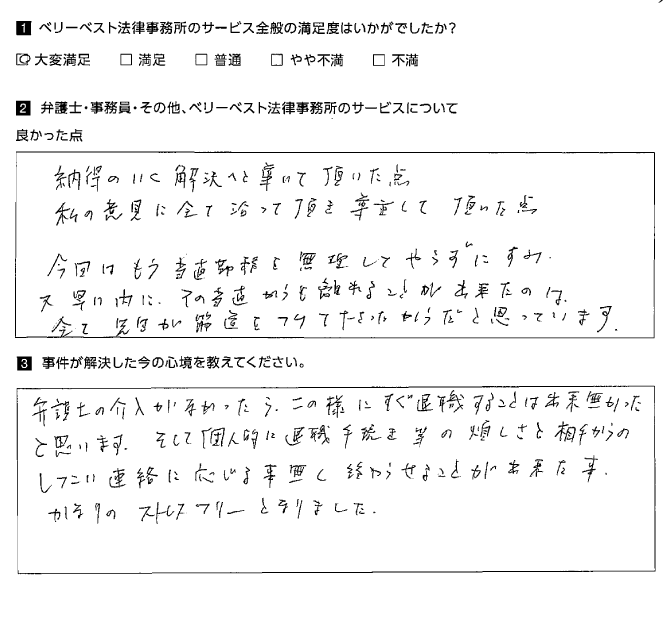 1 ベリーベスト法律事務所のサービス全般の満足度はいかがでしたか?
大変満足 □ 満足 □ 普通 □ やや不満 □ 不満
2 弁護士・事務員・その他、ベリーベスト法律事務所のサービスについて
良かった点
納得のいく解決へと導いて頂いた点
私の意見に全て沿って頂き尊重して頂いた点
今回はもう当直勤務を無理してやらずにすみ、
又早い内に、その当直からも離れることが出来たのは、
全て先生が筋道をつけて下さったからだと思っています。
3 事件が解決した今の心境を教えてください。
弁護士の介入がなかったら、この様にすぐ退職することは出来無かった
と思います。そして個人的に退職手続き等の煩しさと相手からの
しつこい連絡に応じる事無く終わらせることが出来た事、
かなりのストレスフリーとなりました。